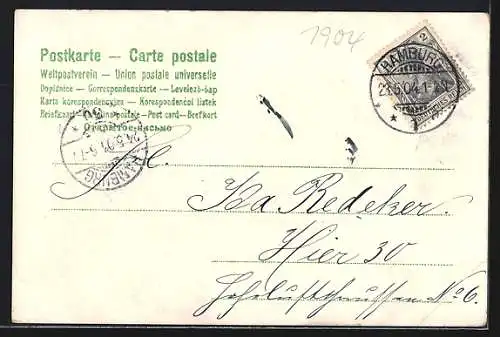 1904
Postkarte — Carte postale
Weltpostverein — Union postale universelle
Dopisnice — Correspondenzkarte — Levelező-lap
Karta korespondencyjna — Korespondenční lístek
Briefkaart — Post card — Brefkort
Открытое письмо
HAMBURG
23.5.04.1-2N
* 1 *
24.5.04.6-7
HAMBURG
Ida Redeker.
Hier 30
No 6.